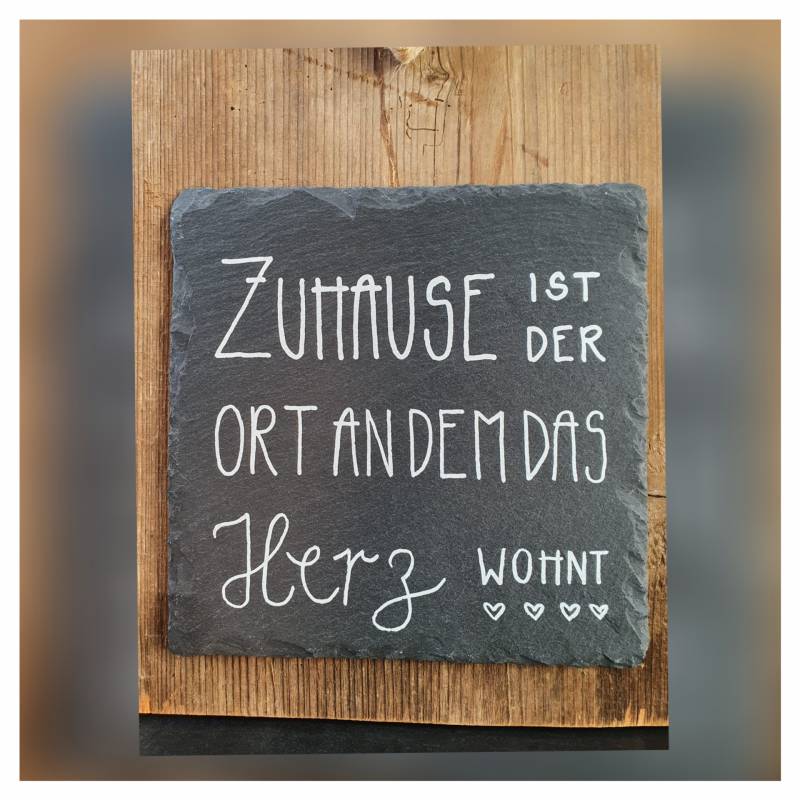 ZUHAUSE IST DER
ORT AN DEM DAS
Herz WOHNT